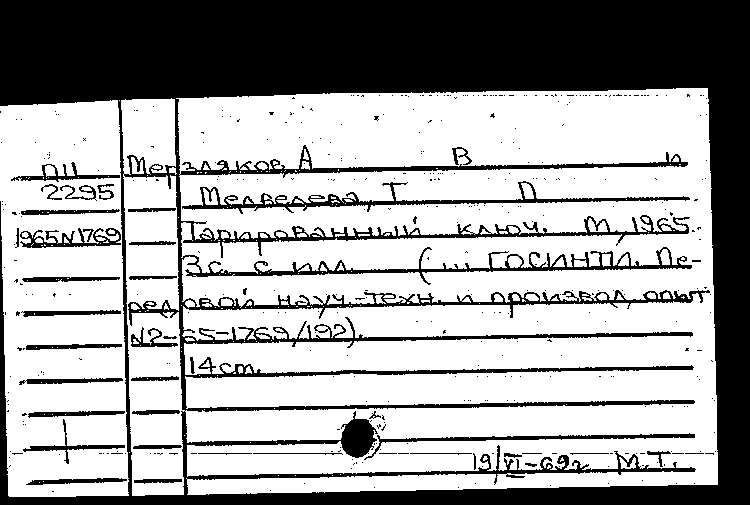 П11 Мерзляков, А В и
2295 Медведева, Т П
1965N1769 Тарированный ключ. М, 1965.
3с. с илл. (... ГОСИНТИ. Пе-
редовой науч.-техн. и производ. опыт
N2-65-1769/192).
14cm.
19/VI-69г М.Т.